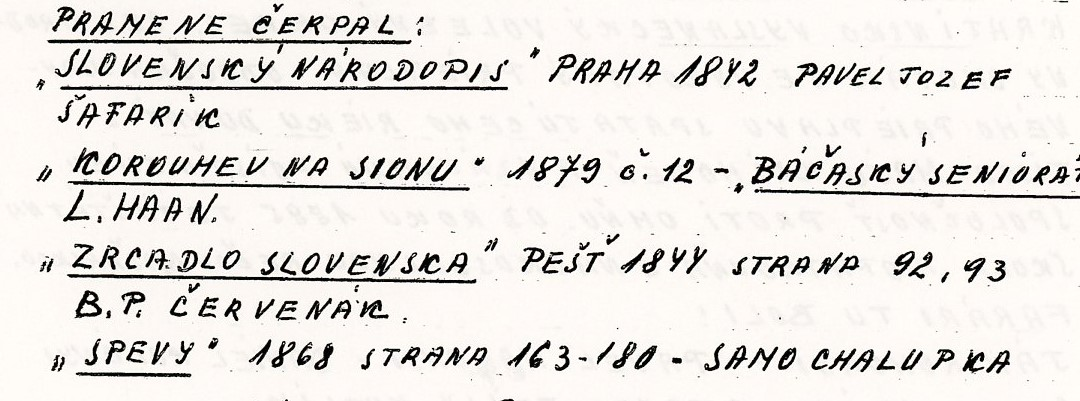 PRAMENE ČERPAL:
„SLOVENSKÝ NÁRODOPIS" PRAHA 1842 PAVEL JOZEF
ŠAFARIK
„KOROUHEV NA SIONU" 1879 č. 12 - „BÁČASKÝ SENIORÁT
L. HAAN.
„ZRCADLO SLOVENSKA" PEŠŤ 1844 STRANA 92, 93
B.P. ČERVENÁK.
„SPEVY" 1868 STRANA 163-180 - SAMO CHALUPKA